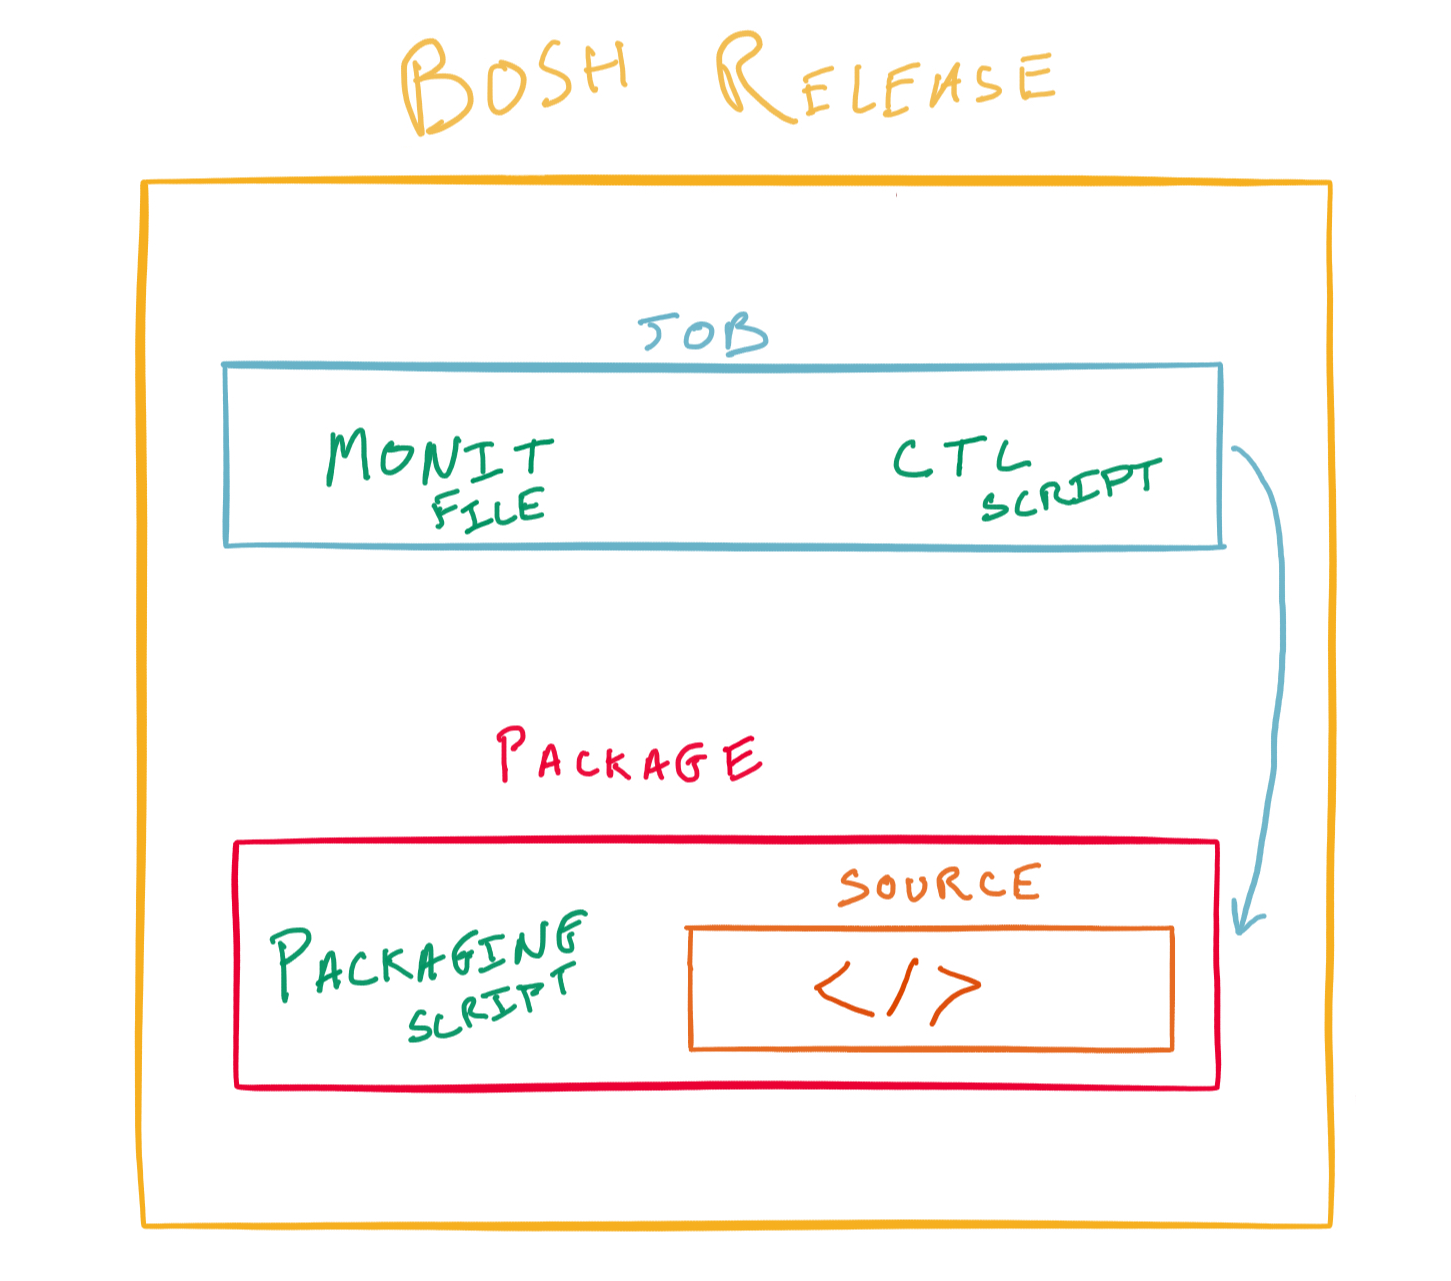 BOSH RELEASE
JOB
MONIT
FILE
CTL
SCRIPT
PACKAGE
PACKAGING
SCRIPT
SOURCE
</>